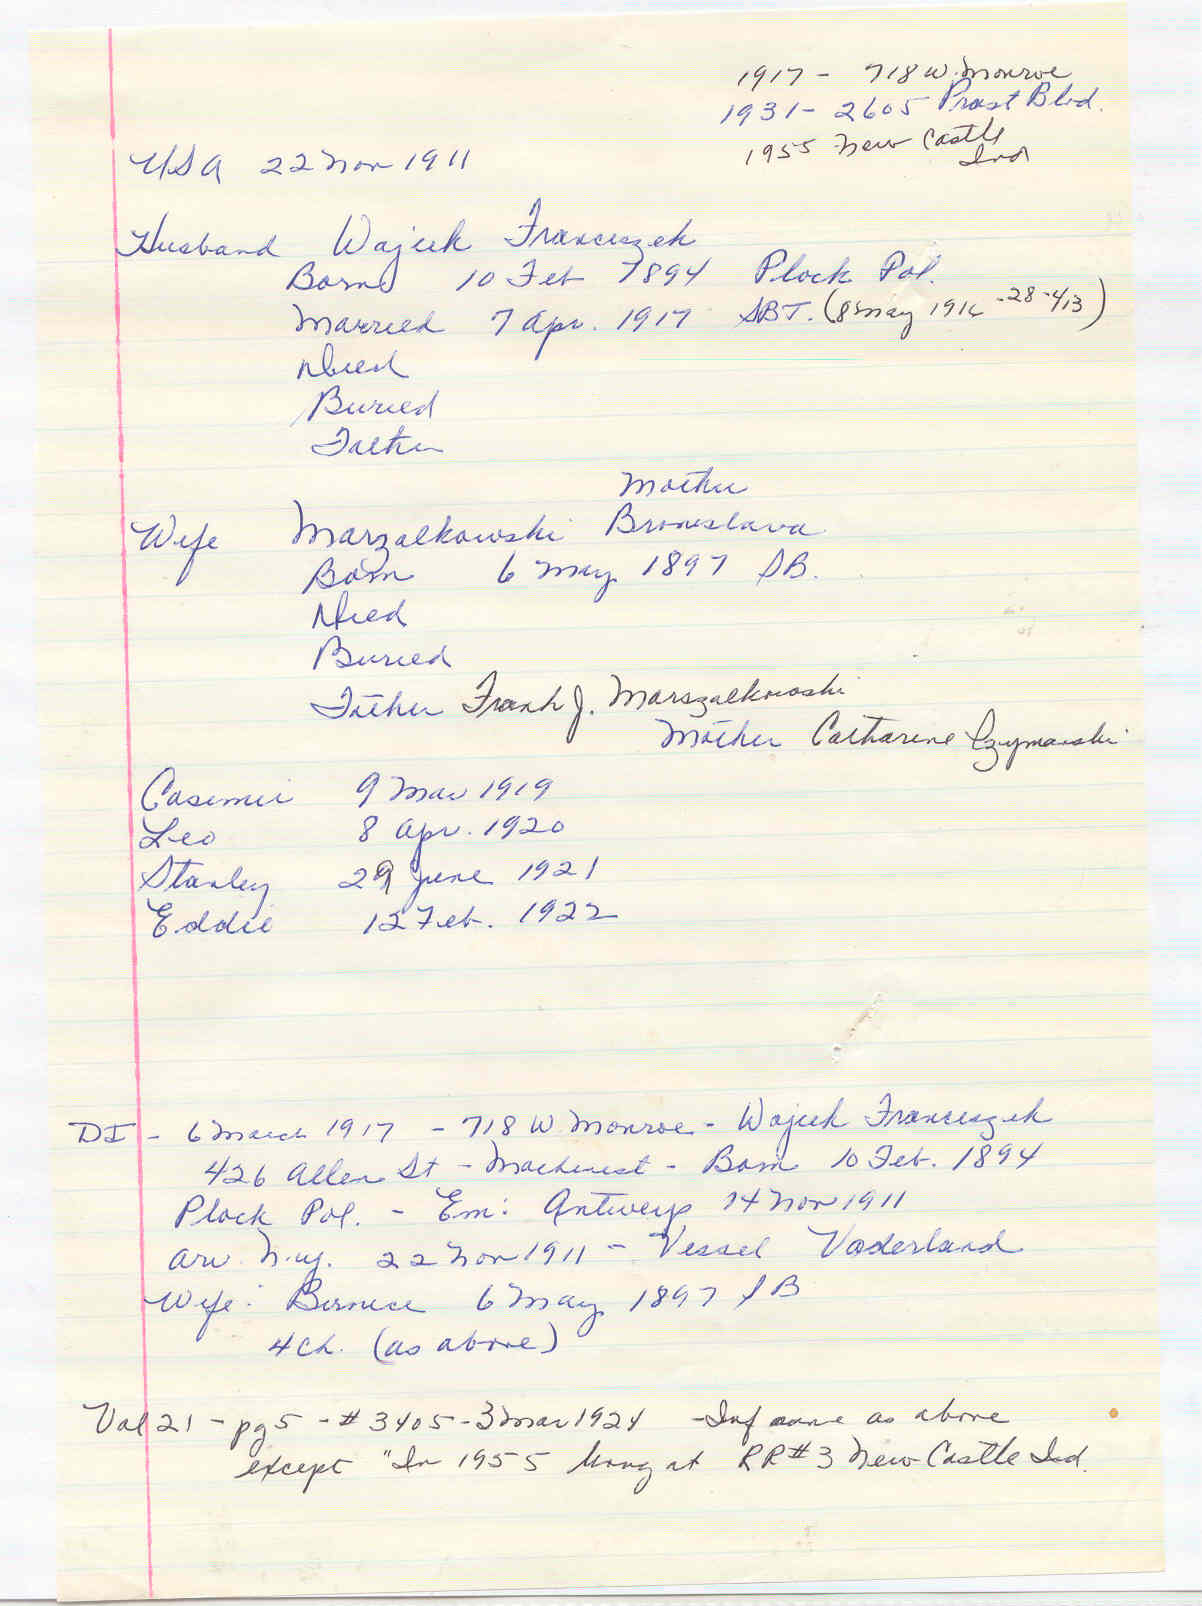 1917 - 718 W. Monroe
1931 - 2605 Prast Blvd.
1955 New Castle
Ind
USA 22 Nov 1911
Husband Wajuk Franciszek
Born 10 Feb 1894 Plock Pol.
Married 7 Apr. 1917 SBT. (8 May 1916 -28-413)
Died
Buried
Father
Mother
Wife Marzalkowski Bronislava
Born 6 May 1897 SB.
Died
Buried
Father Frank J. Marszalkowski
Mother Catharine Szymanski
Casimir 9 Mar 1919
Leo 8 Apr. 1920
Stanley 29 June 1921
Eddie 12 Feb. 1922
DI - 6 March 1917 - 718 W Monroe - Wajuk Franciszek
426 Allen St - Machinist - Born 10 Feb. 1894
Plock Pol. - Em: Antwerp 14 Nov 1911
arv. N.Y. 22 Nov 1911 - Vessel Vaderland
Wife: Bernice 6 May 1897 SB
4 ch. (as above)
Vol 21 - pg 5 - # 3405 - 3 Mar 1924 - Inf same as above
except "In 1955 living at RR # 3 New Castle Ind.